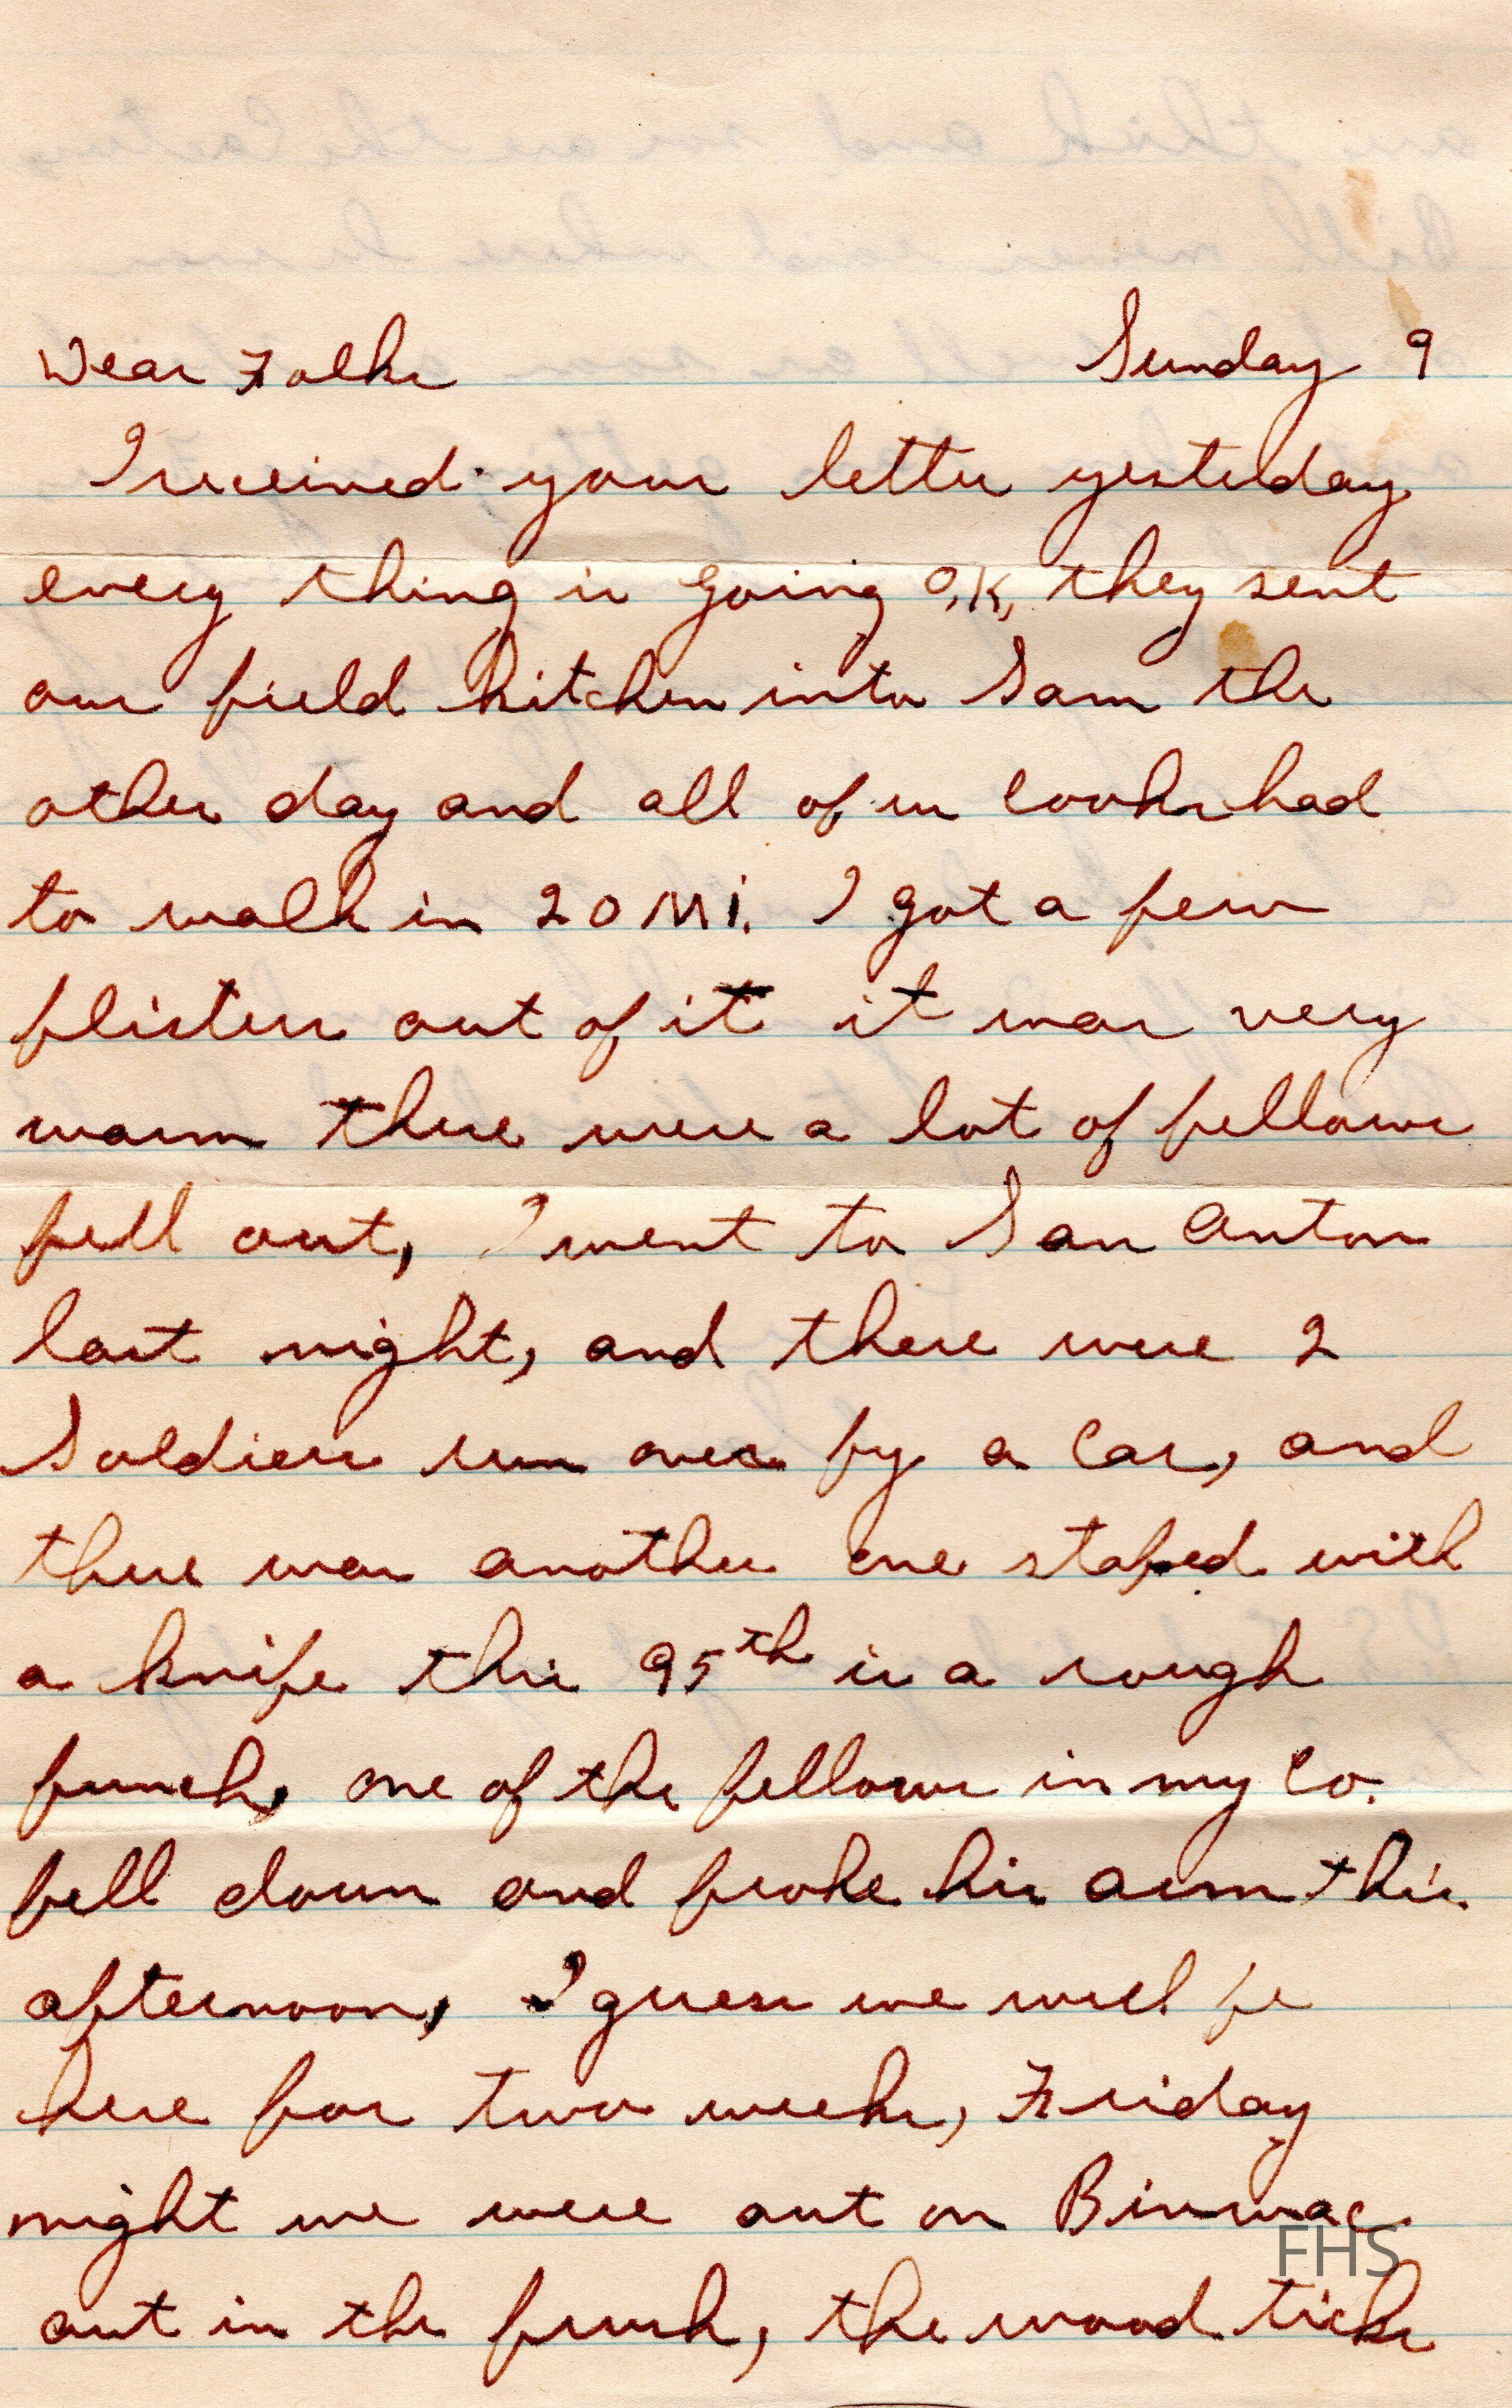 Dear Folks Sunday 9
I received your letter yesterday
every thing is going O.K, they sent
our field kitchen into Sam the
other day and all of us cooks had
to walk in 20 Mi. I got a few
blisters out of it it was very
warm there were a lot of fellows
fell out, I went to San Anton
last night, and there were 2
Soldiers run over by a car, and
there was another one stabed with
a knife this 95th is a rough
bunch, one of the fellows in my Co.
fell down and broke his arm this
afternoon, I guess we will be
here for two weeks, Friday
night we were out on Bivwac
out in the brush, the wood ticks
FHS